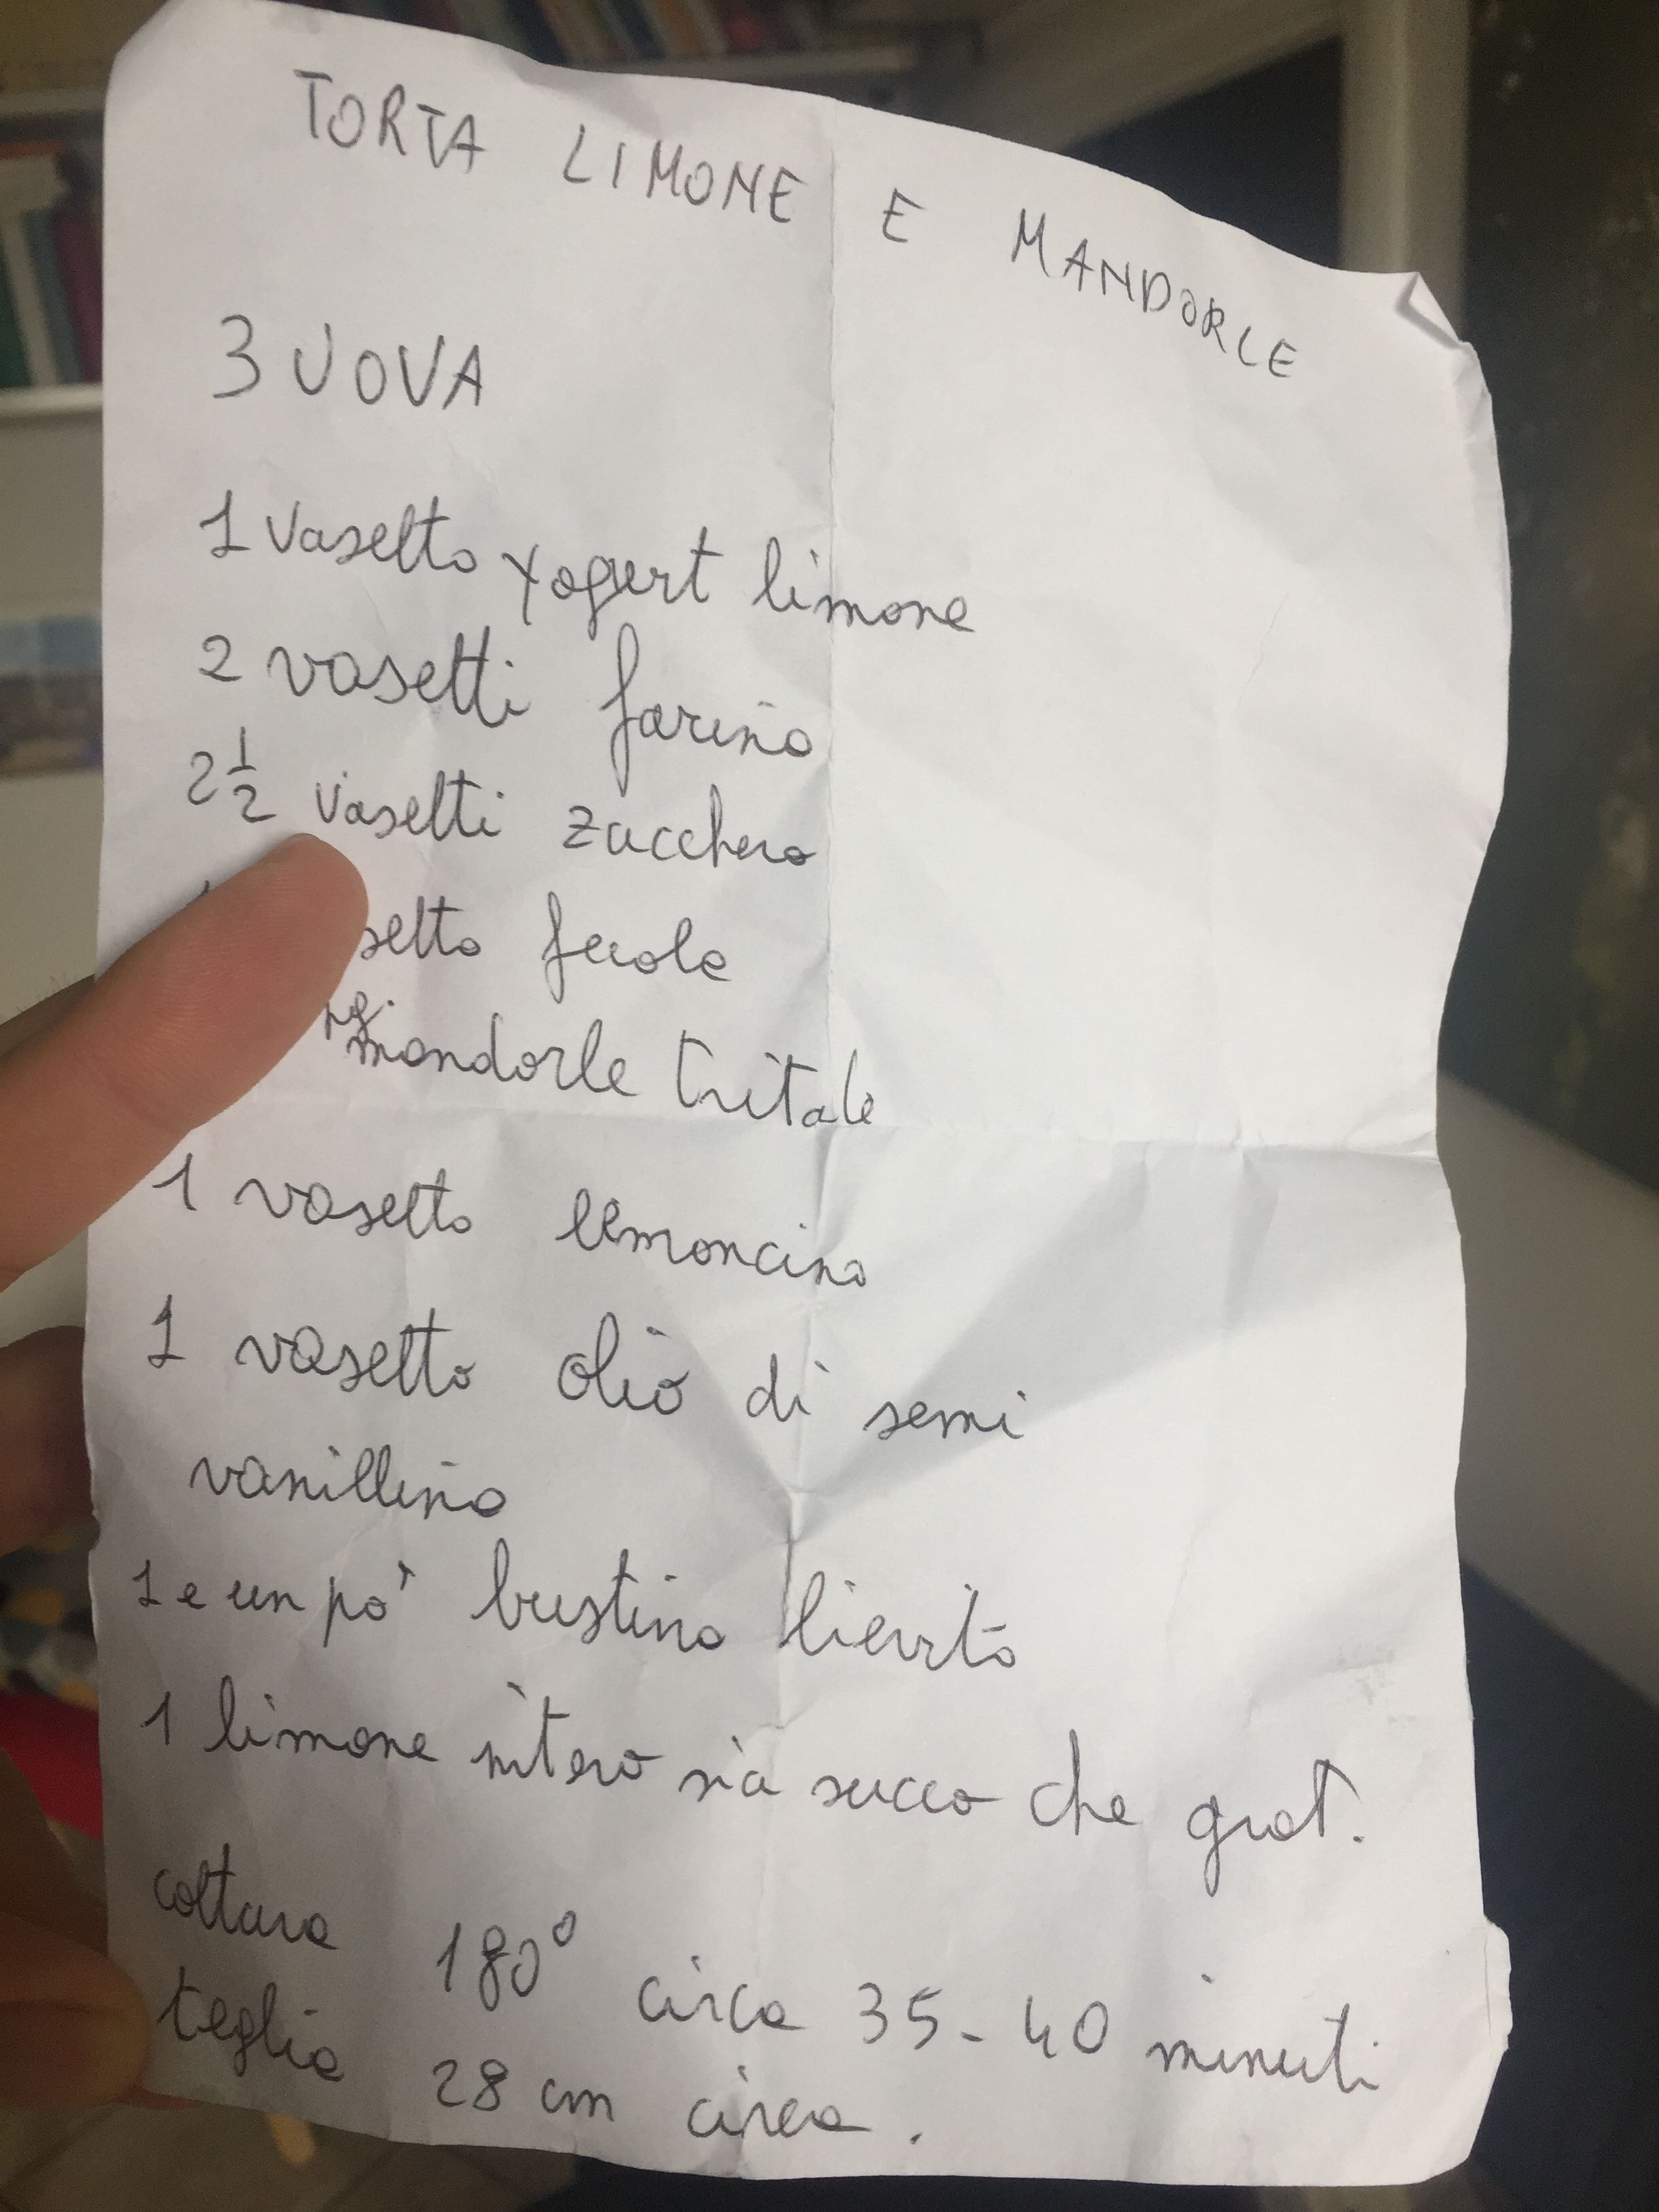 TORTA LIMONE E MANDORLE
3 UOVA
1 vasetto yogurt limone
2 vasetti farina
2 1/2 vasetti zucchero
setto fecola
mandorle tritate
1 vasetto limoncino
1 vasetto olio di semi
vanillina
1 e un po' bustina lievito
1 limone intero sia succo che grat.
cottura 180° circa 35-40 minuti
teglia 28 cm circa.